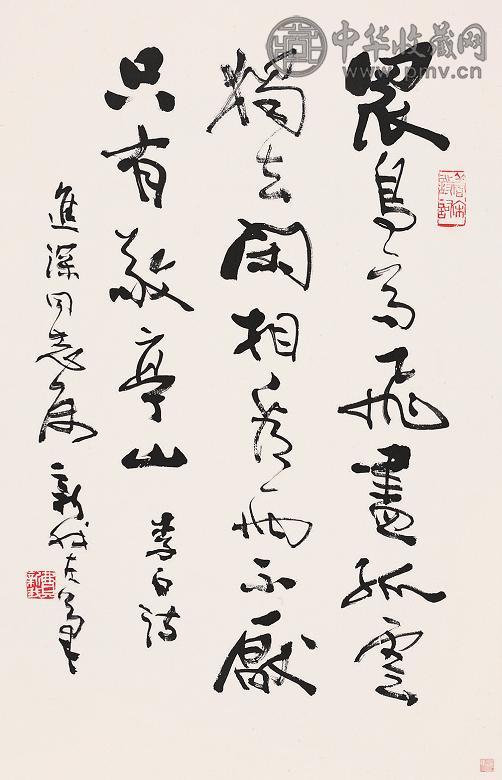 中华收藏网
www.pmv.cn
眾鳥高飛盡孤雲
獨去閑相看兩不厭
只有敬亭山
李白詩
進深同志屬
新我左筆